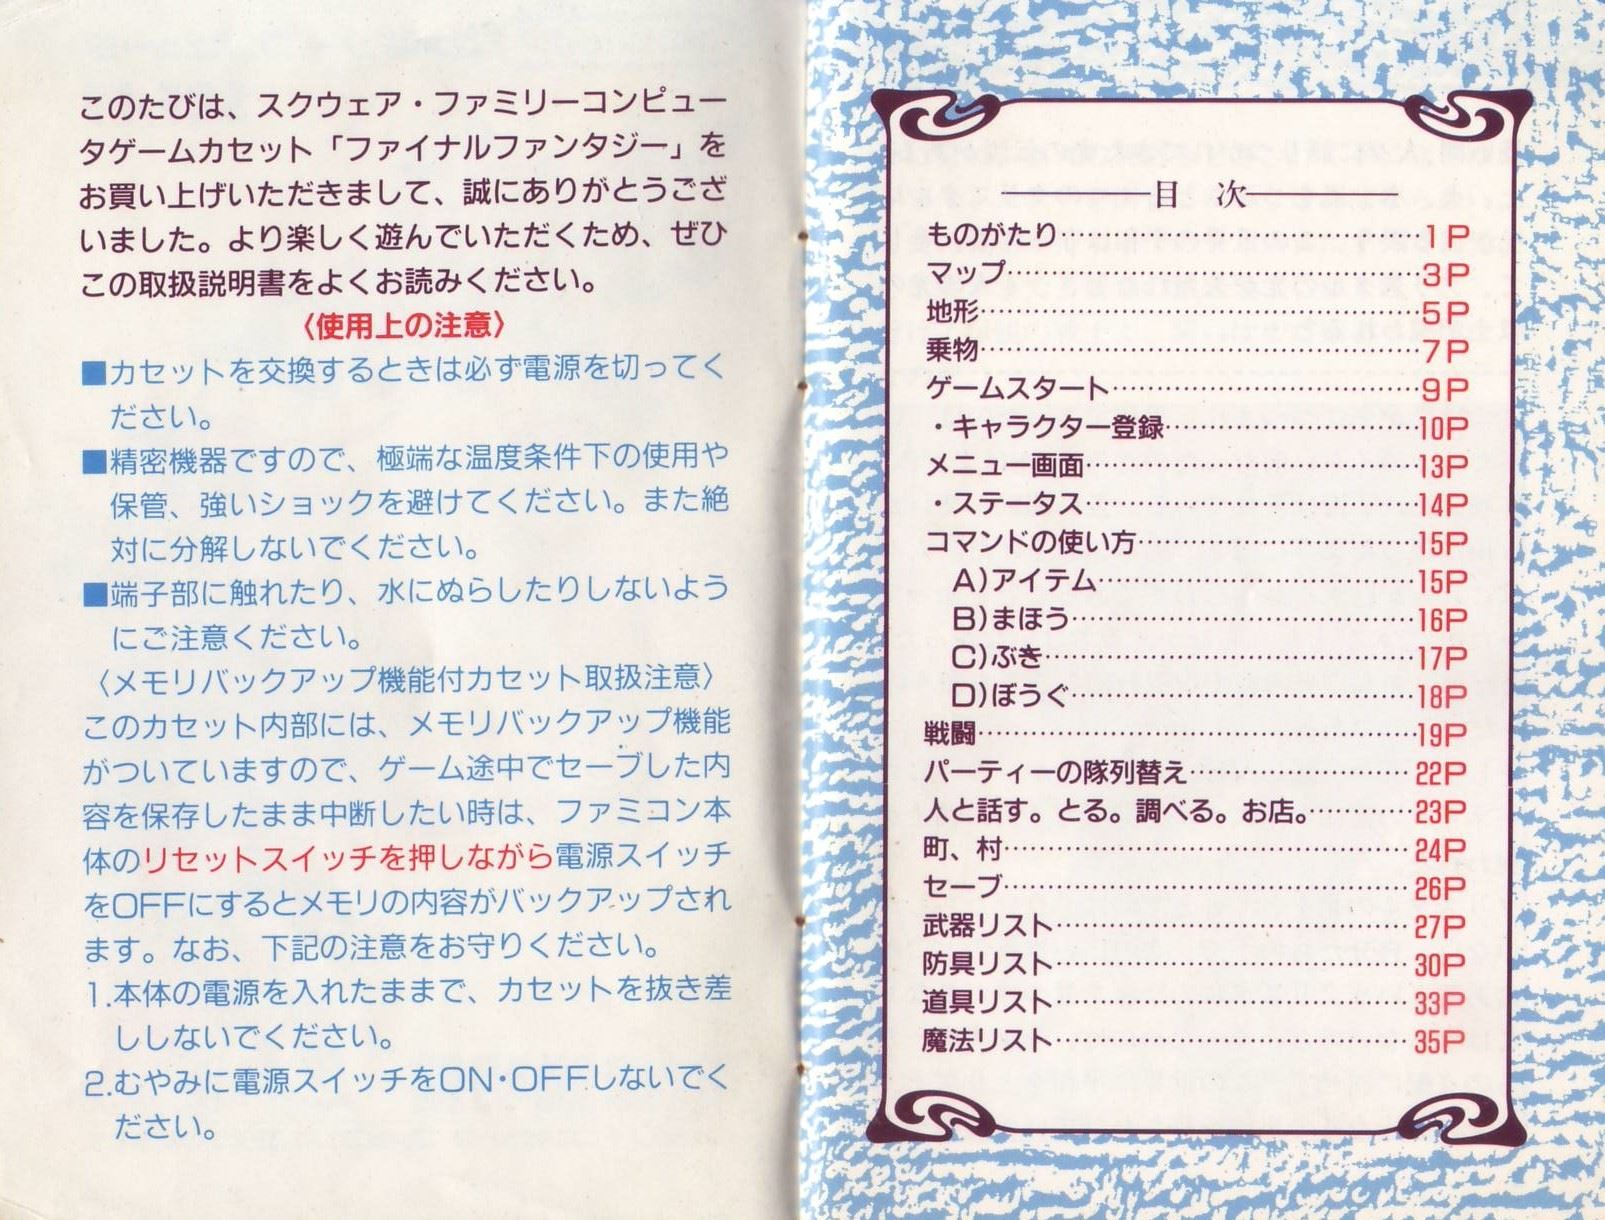 このたびは、スクウェア・ファミリーコンピュー
タゲームカセット「ファイナルファンタジー」を
お買い上げいただきまして、誠にありがとうござ
いました。より楽しく遊んでいただくため、ぜひ
この取扱説明書をよくお読みください。
〈使用上の注意〉
■カセットを交換するときは必ず電源を切ってく
ださい。
■精密機器ですので、極端な温度条件下の使用や
保管、強いショックを避けてください。また絶
対に分解しないでください。
■端子部に触れたり、水にぬらしたりしないよう
にご注意ください。
〈メモリバックアップ機能付カセット取扱注意〉
このカセット内部には、メモリバックアップ機能
がついていますので、ゲーム途中でセーブした内
容を保存したまま中断したい時は、ファミコン本
体のリセットスイッチを押しながら電源スイッチ
をOFFにするとメモリの内容がバックアップされ
ます。なお、下記の注意をお守りください。
1.本体の電源を入れたままで、カセットを抜き差
ししないでください。
2.むやみに電源スイッチをON・OFFしないでく
ださい。
目 次
ものがたり……………………………1P
マップ……………………………3P
地形……………………………5P
乗物……………………………7P
ゲームスタート……………………………9P
・キャラクター登録……………………………10P
メニュー画面……………………………13P
・ステータス……………………………14P
コマンドの使い方……………………………15P
A)アイテム……………………………15P
B)まほう……………………………16P
C)ぶき……………………………17P
D)ぼうぐ……………………………18P
戦闘……………………………19P
パーティーの隊列替え……………………………22P
人と話す。とる。調べる。お店。…………23P
町、村……………………………24P
セーブ……………………………26P
武器リスト……………………………27P
防具リスト……………………………30P
道具リスト……………………………33P
魔法リスト……………………………35P